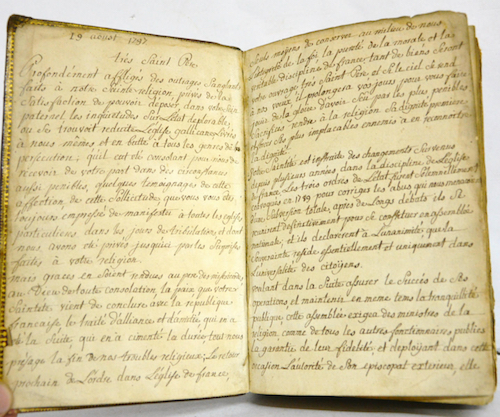 19 aoust 1797
très Saint Père
Profondément affligés des outrages Sanglants
faits à notre Sainte religion, privés de la
Satisfaction de pouvoir déposer dans votre Sein
paternel, les inquiétudes sur l'état deplorable
ou Se trouvoit reduite L'église gallicane livrés
à nous mêmes, et en butte à tous les genres de
persecution, qu'il eut été consolant pour nous de
recevoir de votre part dans des circonstances
aussi penibles, quelques temoignages de cette
affection, de cette Sollicitude que vous vous êtes
toujours empressé de manifester à toutes les églises
particulieres dans les jours de tribulation, et dont
nous avons été privés jusqu'ici par les Surprises
faites à votre religion.
mais graces en Soient rendues au pere des misericordes,
au Dieu de toute consolation, la paix que votre
Sainteté vient de conclure avec la république
française, le traité d'alliance et d'amitié qui en a
été la Suite, qui en a cimenté la durée, tout nous
présage la fin de nos troubles religieux; Le retour
prochain de L'ordre dans L'église de france,
moyens de conserver au milieu de nous
L'integrité de la foi, la pureté de la morale et la
veritable discipline de france; tant de biens Seront
votre ouvrage très Saint Père, et Si le ciel Se rend
à nos voeux, il prolongera vos jours pour vous faire
jouir de la gloire d'avoir Seu par les plus penibles
Sacrifices rendre à la religion Sa dignité premiere,
et forcer Ses plus implacables ennemis à en reconnoitre
la divinité.
votre Sainteté est instruite des changements Survenus
depuis plusieurs années dans la discipline de L'église
de france. Les trois ordres de L'etat furent Solemnellement
convoqués en 1789 pour corriger les abus qui nous menaçoient
d'une Subversion totale, après de Longs debats ils Se
réunirent definitivement pour se constituer en assemblée
nationale, et ils déclarerent à L'unanimité que la
Souveraineté reside essentiellement et uniquement dans
L'universalité des citoÿens.
voulant dans la Suite assurer le Succès de Ses
operations et maintenir en meme tems la tranquilité
publique cette assemblée exigea des ministres de la
religion, comme de tous les autres fonctionnaires publics
la garantie de leur fidelité, et deployant dans cette
occasion L'autorité de Son episcopat exterieur, elle